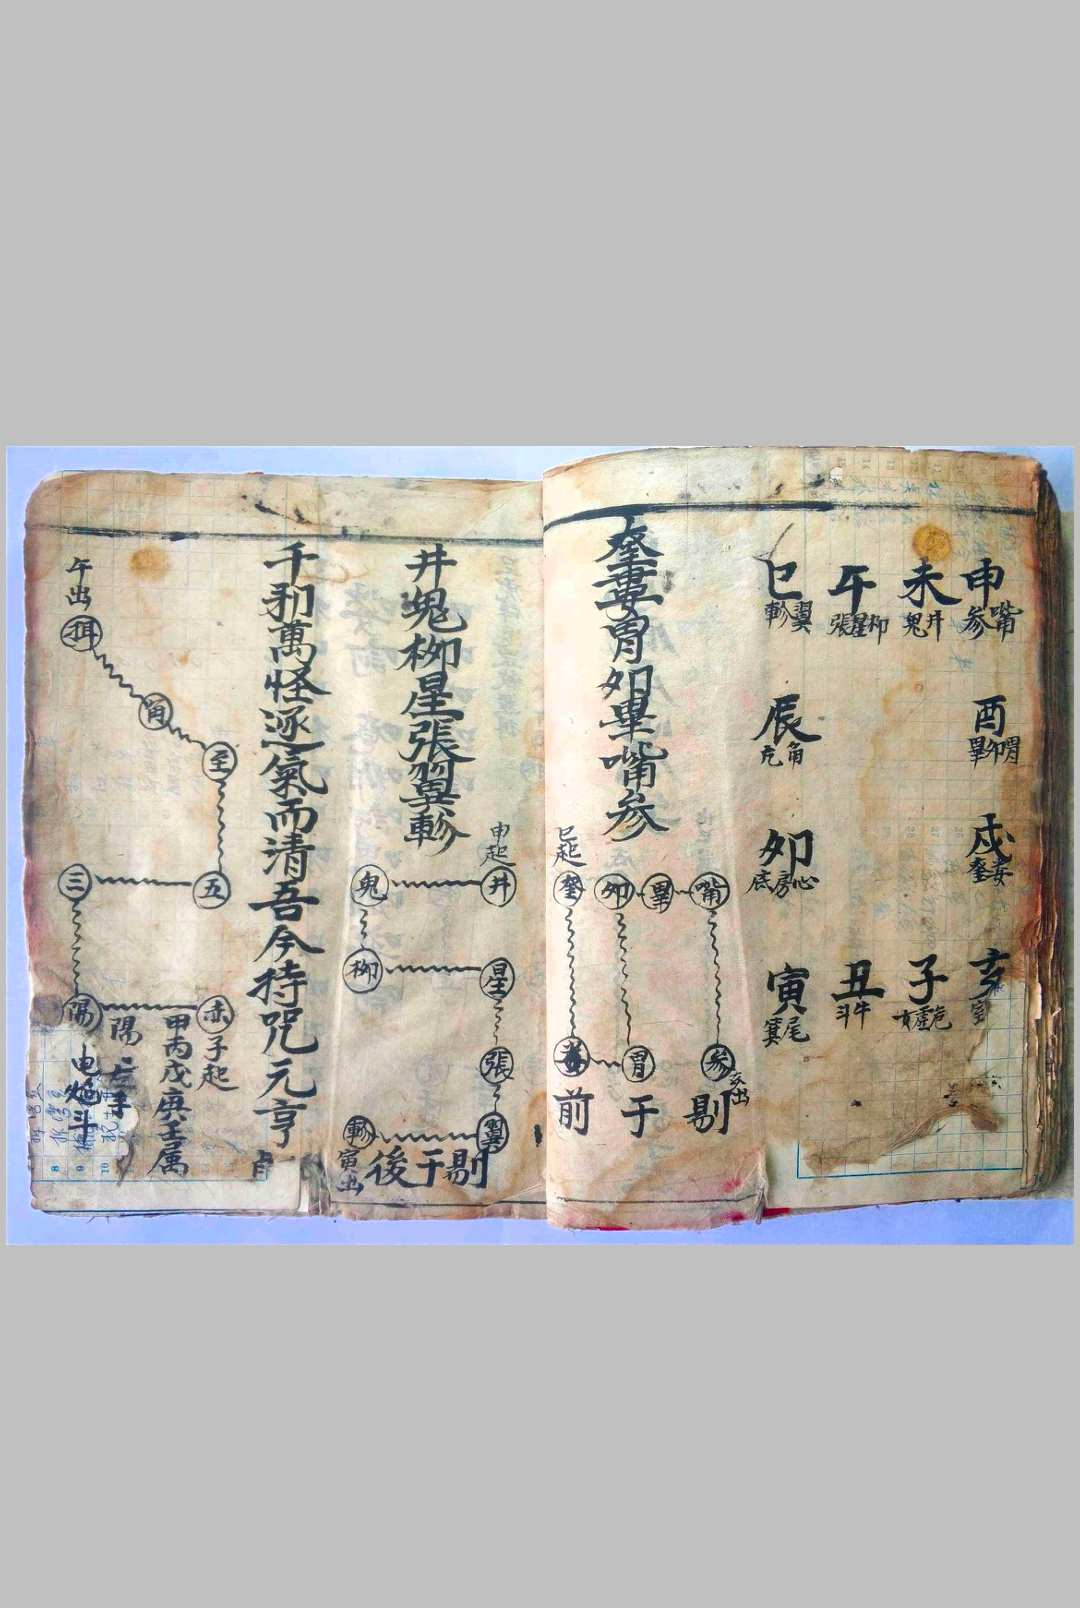 申 未 午 巳
嘴参 井鬼 柳星張 翼軫
酉 辰
胃卯畢 角亢
戌 卯
婁奎 心房底
亥 子 丑 寅
室 危虛女 牛斗 尾箕
奎婁胃卯畢嘴参
巳起
奎 卯 畢 嘴
婁 胃 参
亥出
前 于 剔
井鬼柳星張翼軫
申起
井 鬼
星 柳
張
翼 軫
寅出
後于剔
千和萬怪逐氣而清吾今持咒元亨
午出
至
五 三
赤 陽
子起
甲丙戊庚壬属
陽
8
9
10